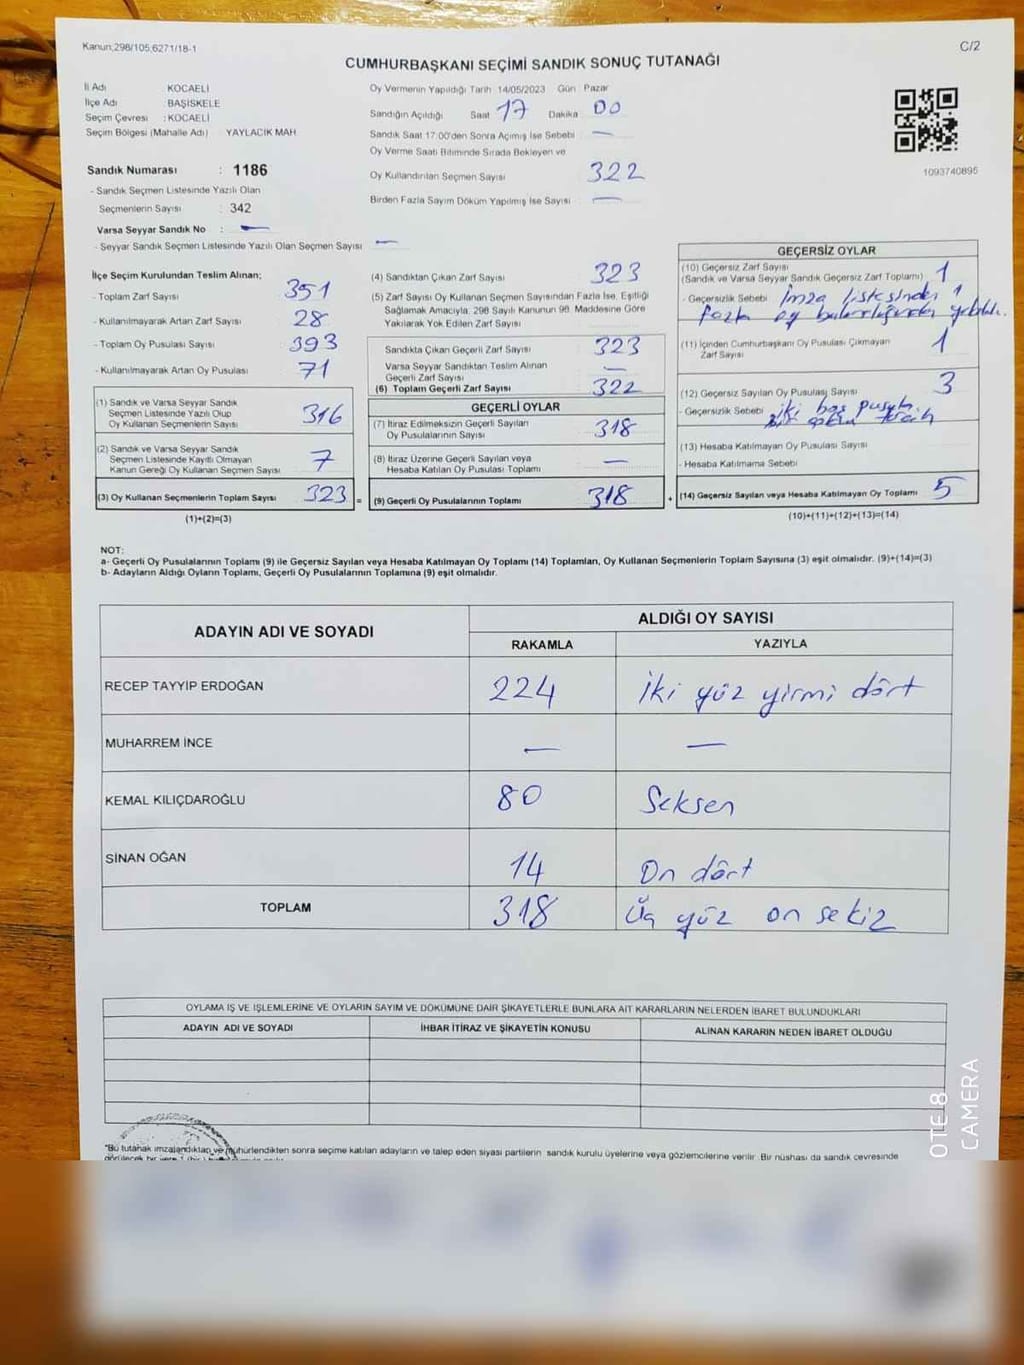 Kanun;298/105,6271/18-1
C/2
CUMHURBAŞKANI SEÇİMİ SANDIK SONUÇ TUTANAĞI
İl Adı KOCAELİ
İlçe Adı : BAŞİSKELE
Seçim Çevresi : KOCAELİ
Seçim Bölgesi (Mahalle Adı) YAYLACIK MAH
Sandık Numarası : 1186
- Sandık Seçmen Listesinde Yazılı Olan
Seçmenlerin Sayısı : 342
Varsa Seyyar Sandık No : —
- Seyyar Sandık Seçmen Listesinde Yazılı Olan Seçmen Sayısı —
Oy Vermenin Yapıldığı Tarih 14/05/2023 Gün Pazar
Sandığın Açıldığı Saat 17 Dakika 00
Sandık Saat 17:00'den Sonra Açımış İse Sebebi —
Oy Verme Saati Bitiminde Sırada Bekleyen ve
Oy Kullandırılan Seçmen Sayısı 322
Birden Fazla Sayım Döküm Yapılmış İse Sayısı —
1093740895
İlçe Seçim Kurulundan Teslim Alınan;
- Toplam Zarf Sayısı 351
- Kullanılmayarak Artan Zarf Sayısı 28
- Toplam Oy Pusulası Sayısı 393
- Kullanılmayarak Artan Oy Pusulası 71
(1) Sandık ve Varsa Seyyar Sandık
Seçmen Listesinde Yazılı Olup
Oy Kullanan Seçmenlerin Sayısı 316
(2) Sandık ve Varsa Seyyar Sandık
Seçmen Listesinde Kayıtlı Olmayan
Kanun Gereği Oy Kullanan Seçmen Sayısı 7
(3) Oy Kullanan Seçmenlerin Toplam Sayısı 323 =
(1)+(2)=(3)
(4) Sandıktan Çıkan Zarf Sayısı 323
(5) Zarf Sayısı Oy Kullanan Seçmen Sayısından Fazla İse, Eşitliği
Sağlamak Amacıyla, 298 Sayılı Kanunun 98. Maddesine Göre
Yakılarak Yok Edilen Zarf Sayısı
Sandıkta Çıkan Geçerli Zarf Sayısı 323
Varsa Seyyar Sandıktan Teslim Alınan
Geçerli Zarf Sayısı —
(6) Toplam Geçerli Zarf Sayısı 322
GEÇERLİ OYLAR
(7) İtiraz Edilmeksizin Geçerli Sayılan
Oy Pusulalarının Sayısı 318
(8) İtiraz Üzerine Geçerli Sayılan veya
Hesaba Katılan Oy Pusulası Toplamı —
(9) Geçerli Oy Pusulalarının Toplamı 318 +
GEÇERSİZ OYLAR
(10) Geçersiz Zarf Sayısı
(Sandık ve Varsa Seyyar Sandık Geçersiz Zarf Toplamı) 1
- Geçersizlik Sebebi İmza listesinden 1
fazla oy bulunduğundan yakıldı.
(11) İçinden Cumhurbaşkanı Oy Pusulası Çıkmayan
Zarf Sayısı 1
(12) Geçersiz Sayılan Oy Pusulası Sayısı 3
- Geçersizlik Sebebi iki boş pusula
(13) Hesaba Katılmayan Oy Pusulası Sayısı
- Hesaba Katılmama Sebebi
(14) Geçersiz Sayılan veya Hesaba Katılmayan Oy Toplamı 5
(10)+(11)+(12)+(13)=(14)
NOT:
a- Geçerli Oy Pusulalarının Toplamı (9) ile Geçersiz Sayılan veya Hesaba Katılmayan Oy Toplamı (14) Toplamları, Oy Kullanan Seçmenlerin Toplam Sayısına (3) eşit olmalıdır. (9)+(14)=(3)
b- Adayların Aldığı Oyların Toplamı, Geçerli Oy Pusulalarının Toplamına (9) eşit olmalıdır.
ADAYIN ADI VE SOYADI
ALDIĞI OY SAYISI
RAKAMLA YAZIYLA
RECEP TAYYİP ERDOĞAN 224 İki yüz yirmi dört
MUHARREM İNCE — —
KEMAL KILIÇDAROĞLU 80 Seksen
SİNAN OĞAN 14 On dört
TOPLAM 318 Üç yüz on sekiz
OYLAMA İŞ VE İŞLEMLERİNE VE OYLARIN SAYIM VE DÖKÜMÜNE DAİR ŞİKAYETLERLE BUNLARA AİT KARARLARIN NELERDEN İBARET BULUNDUKLARI
ADAYIN ADI VE SOYADI İHBAR İTİRAZ VE ŞİKAYETİN KONUSU ALINAN KARARIN NEDEN İBARET OLDUĞU
*Bu tutanak imzalandıktan ve mühürlendikten sonra seçime katılan adayların ve talep eden siyasi partilerin sandık kurulu üyelerine veya gözlemcilerine verilir. Bir nüshası da sandık çevresinde
OTE 8
CAMERA